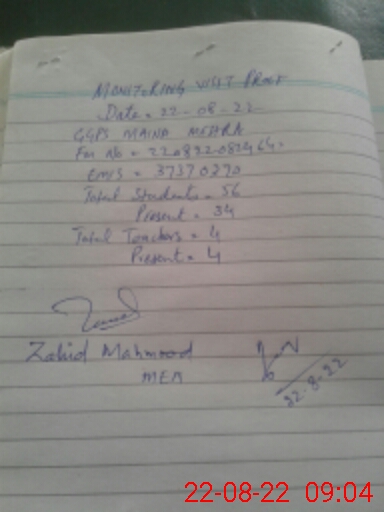 MONITORING VISIT PROOF
Date = 22-08-22
GGPS MAINA MEHRA
EMIS = 37370290
Total Students = 56
Present = 34
Total Teachers = 4
Present = 4
Zahid Mahmood
MEA
22-8-22
22-08-22 09:04